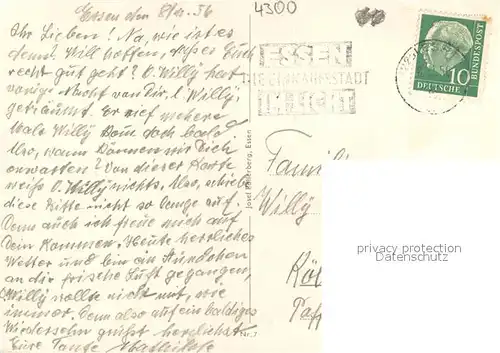 Essen den 8/11. 56
Ihr Lieben! Na, wie ist es
denn? Will hoffen, dass es Euch
recht gut geht? O. Willy hat
vorige Nacht von Dir, l. Willy,
geträumt. Er rief mehrere
Male Willy komm doch bald
Also, wann können wir Dich
erwarten? Von dieser Karte
weiß O. Willy nichts. Also, schieb
diese Bitte nicht so lange auf.
Denn auch ich freue mich auf
Dein Kommen. Heute herrliches
Wetter und bin ein Stündchen
an die frische Luft gegangen,
Willy wollte nicht mit, wie
immer. Denn also auf ein baldiges
Wiedersehn grüßt herzlichst
Eure Tante
4300
ESSEN
DIE EINKAUFSSTADT
IM LICHT
10
DEUTSCHE
BUNDESPOST
Essen
Nr. 7
Famil
Willy
Köl
privacy protection
Datenschutz